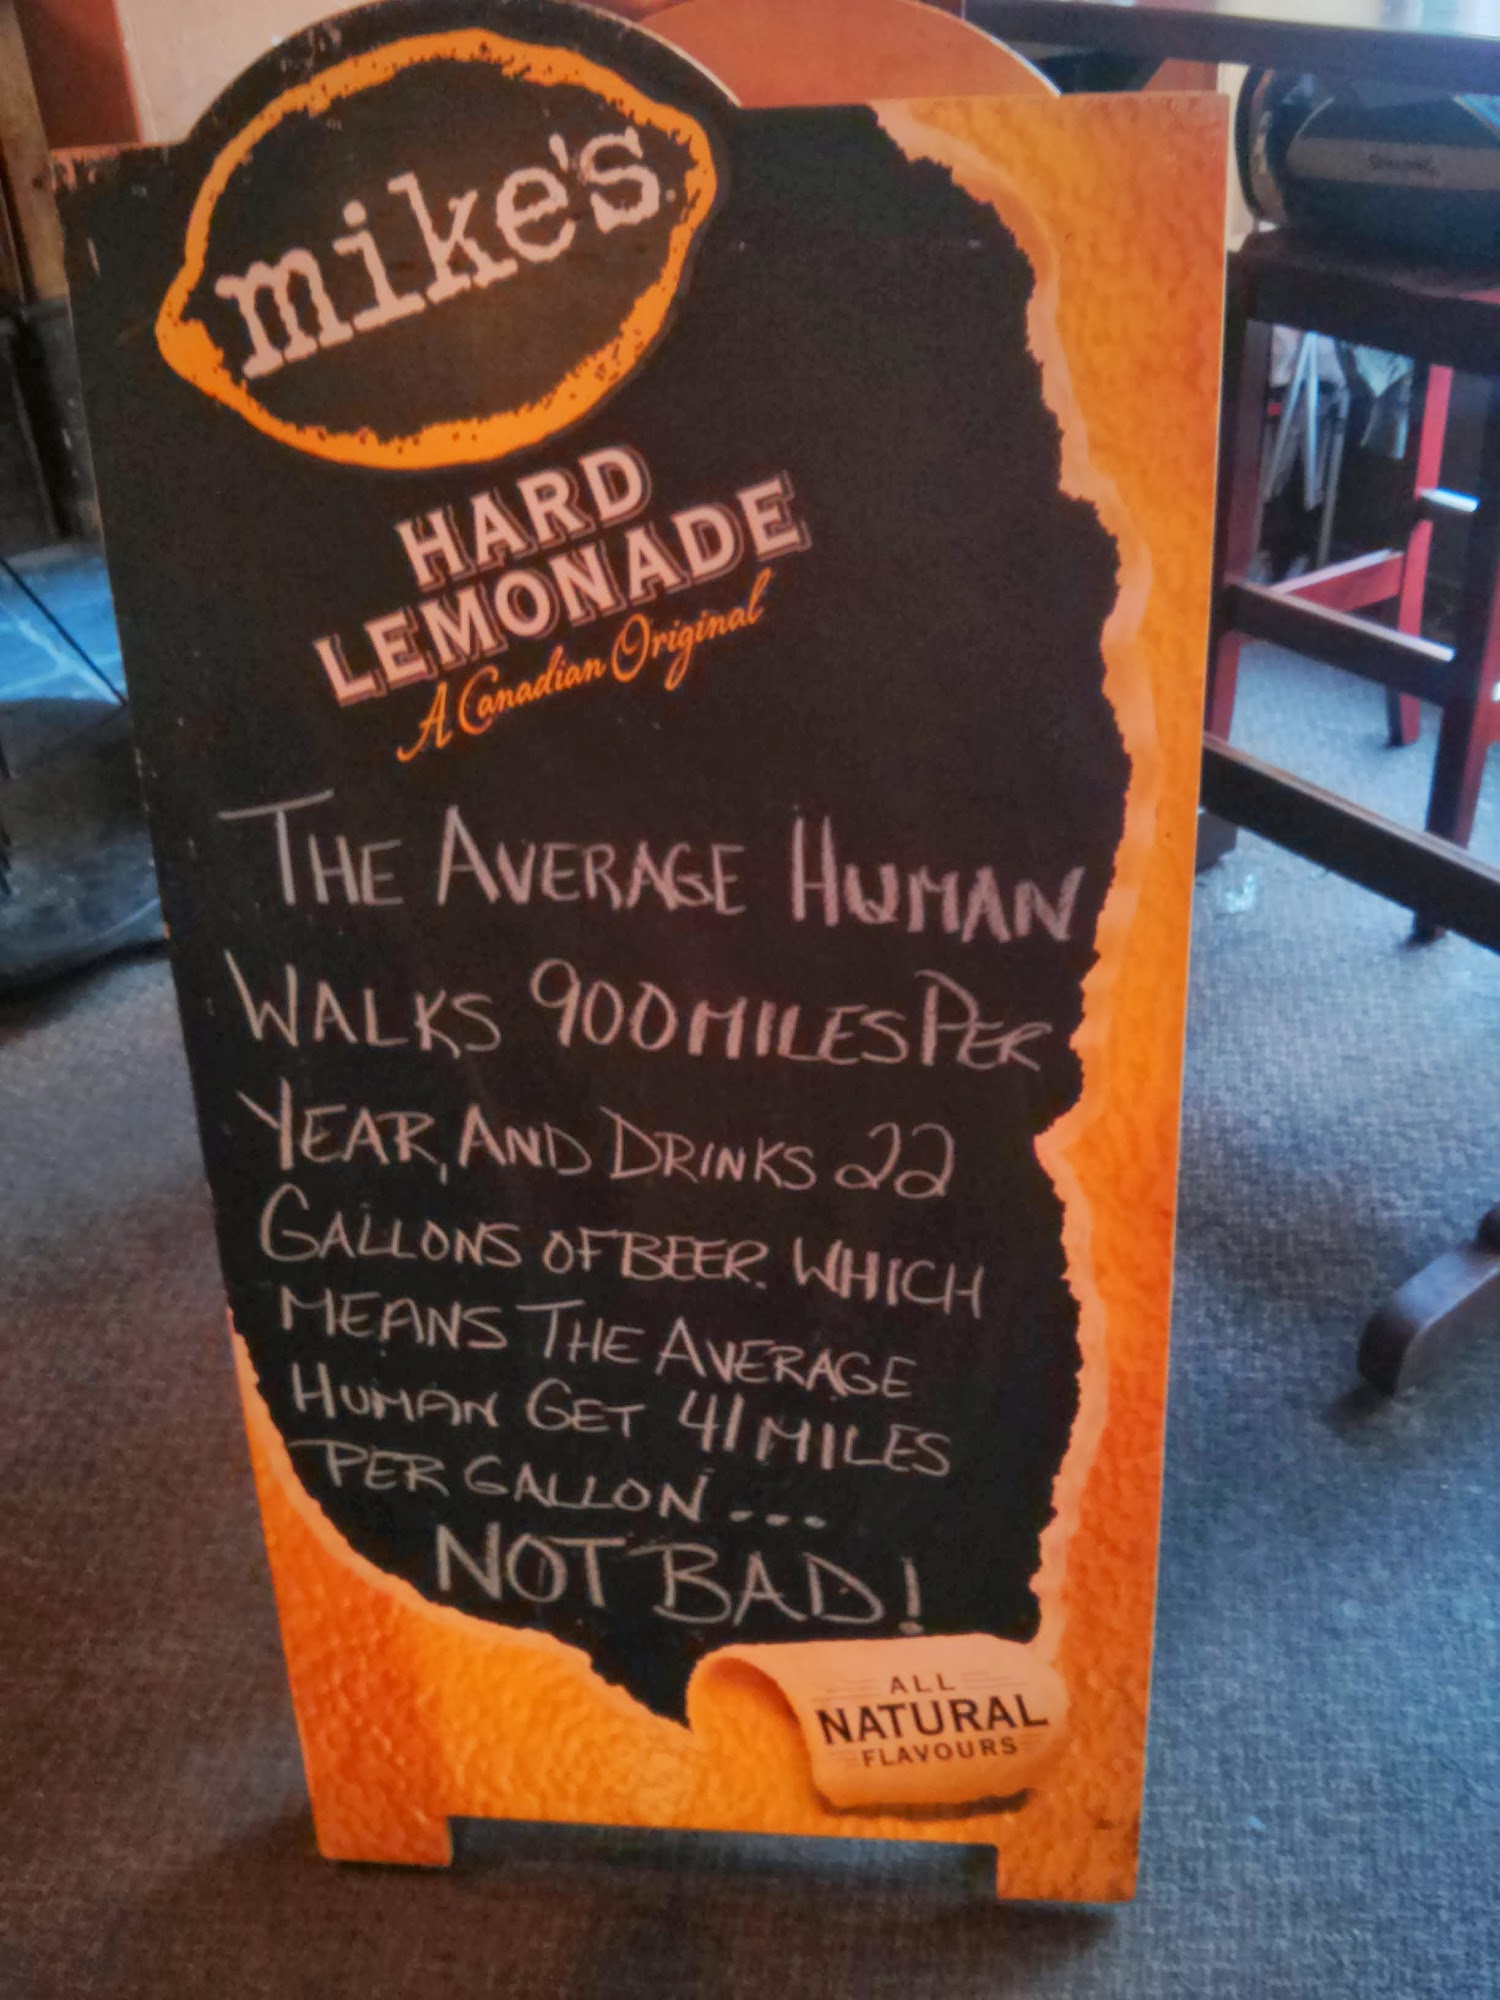 mike's
HARD
LEMONADE
A Canadian Original
THE AVERAGE HUMAN
WALKS 900 MILES PER
YEAR, AND DRINKS 22
GALLONS OF BEER. WHICH
MEANS THE AVERAGE
HUMAN GET 41 MILES
PER GALLON ....
NOT BAD!
ALL
NATURAL
FLAVOURS